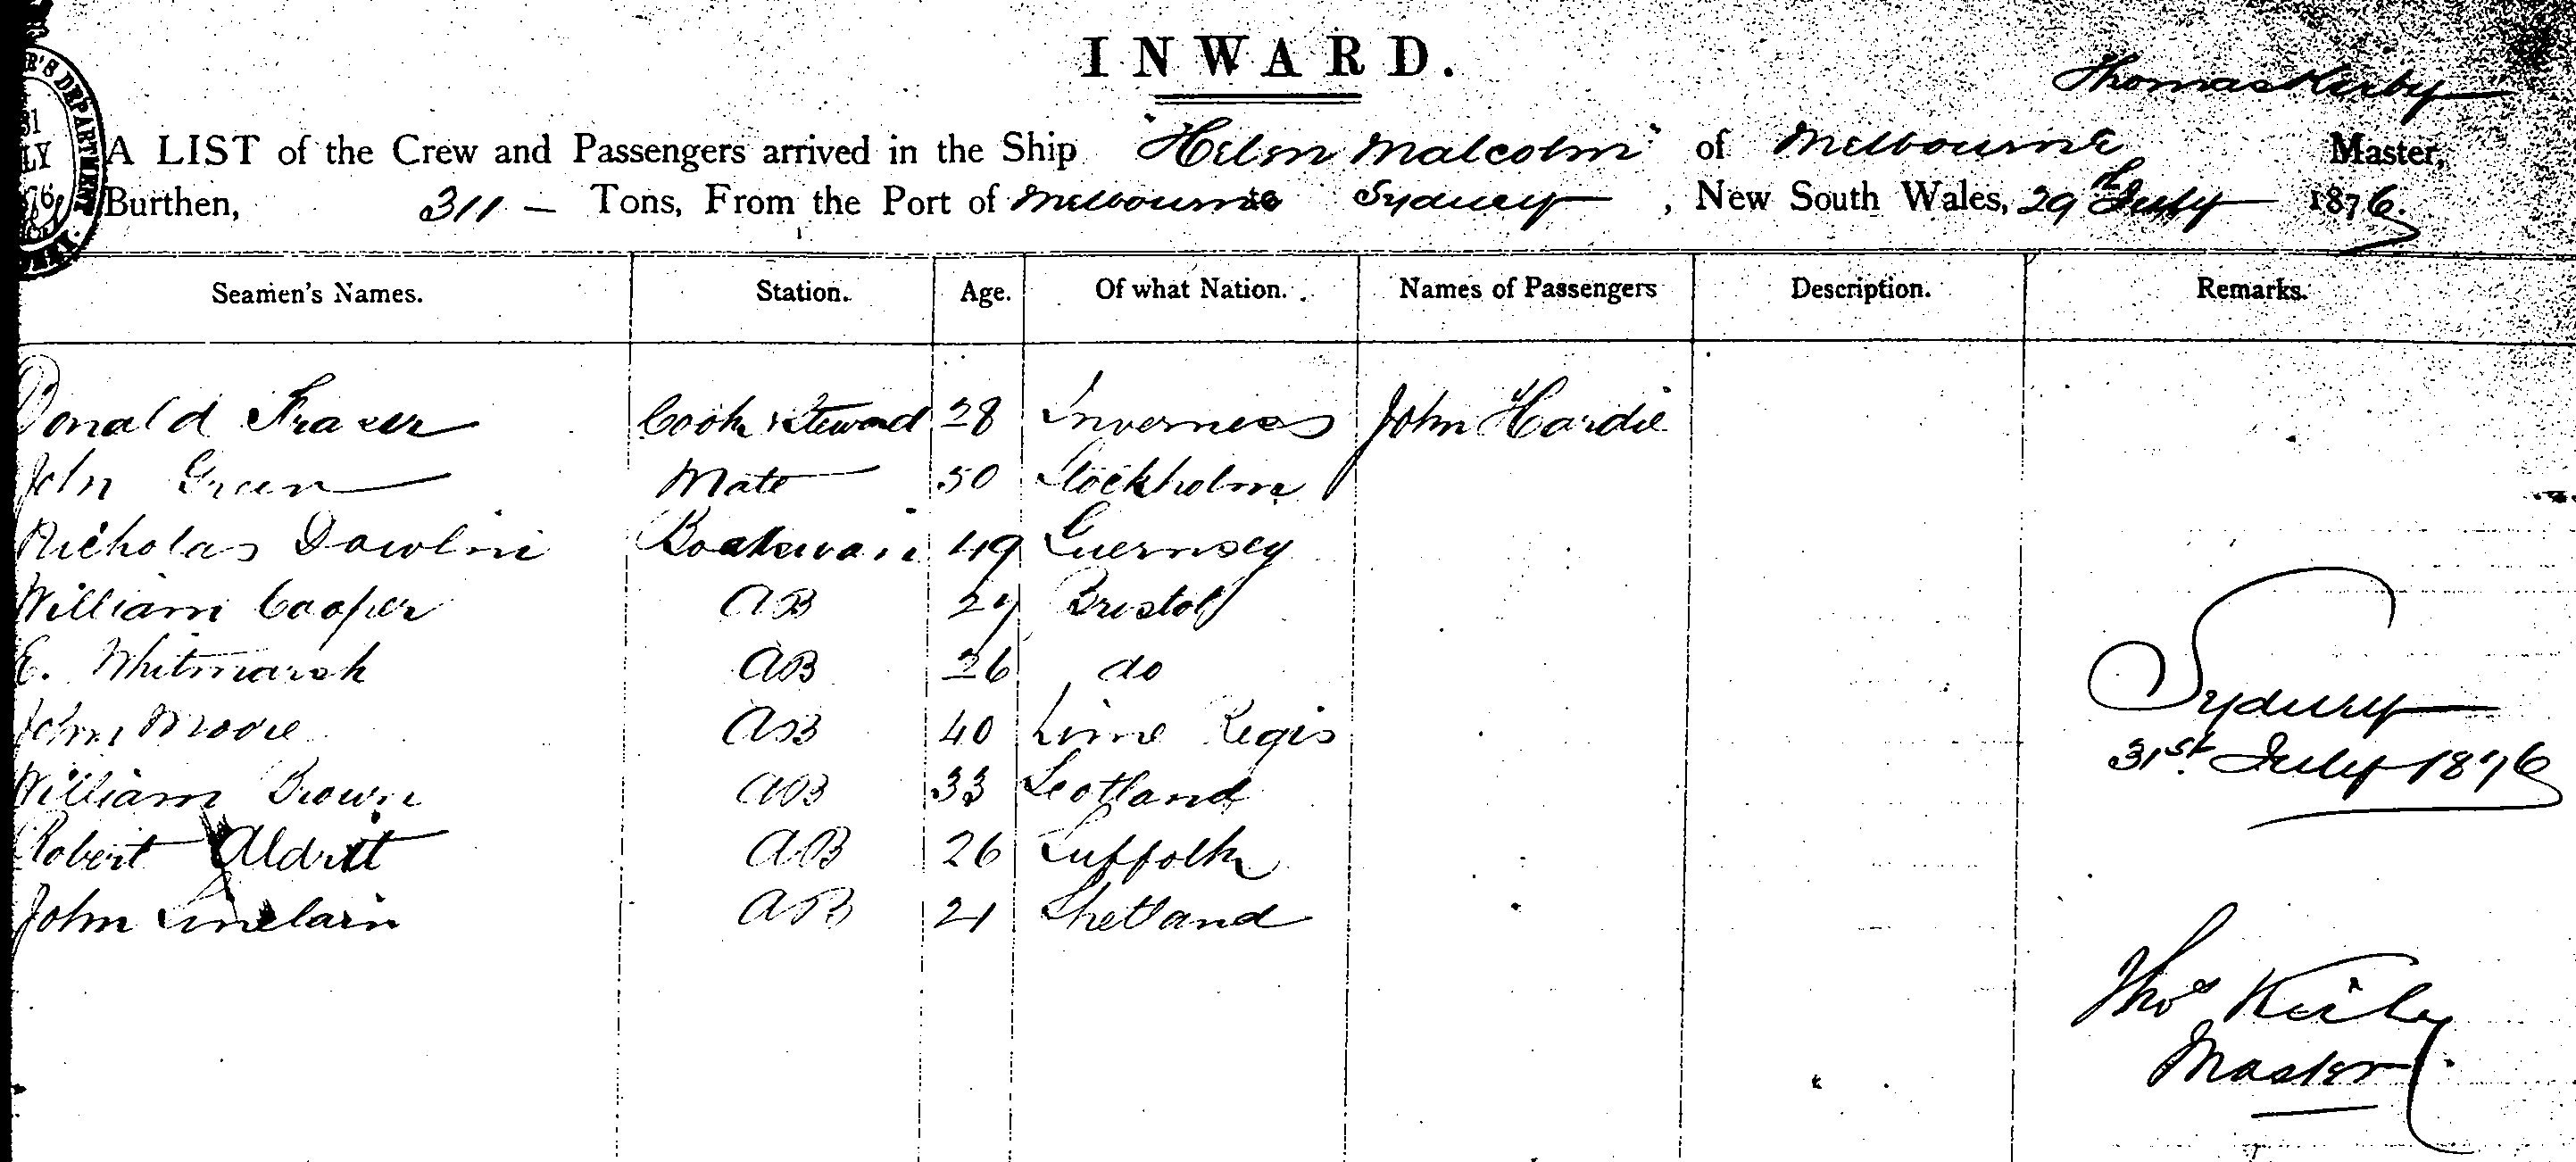 INWARD.
Thomas Kirby
A LIST of the Crew and Passengers arrived in the Ship "Helen Malcolm" of Melbourne Master,
Burthen, 311 — Tons, From the Port of Melbourne to Sydney, New South Wales, 29th July 1876.
R'S DEPARTMENT
31
LY
Seamen's Names. Station. Age. Of what Nation. Names of Passengers Description. Remarks.
Donald Frazer Cook & Steward 28 Inverness John Hardie
John Green Mate 50 Stockholm
Nicholas Dowlin Boatswain 49 Guernsey
William Cooper AB 27 Bristol
E. Whitmarsh AB 26 do
John Moore AB 40 Lime Regis
William Brown AB 33 Scotland
Robert Aldritt AB 26 Suffolk
John Sinclair AB 21 Shetland
Sydney
31st July 1876
Thos Kirby
Master